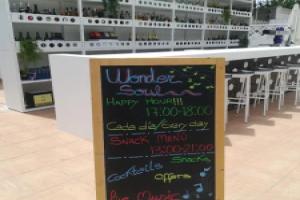 Wonder
Soul
HAPPY HOUR!!!
17:00-18:00
Cada dia/Every day
SNACK MENÚ
13:00-21:00
Snacks
Cocktails
Offers
Music